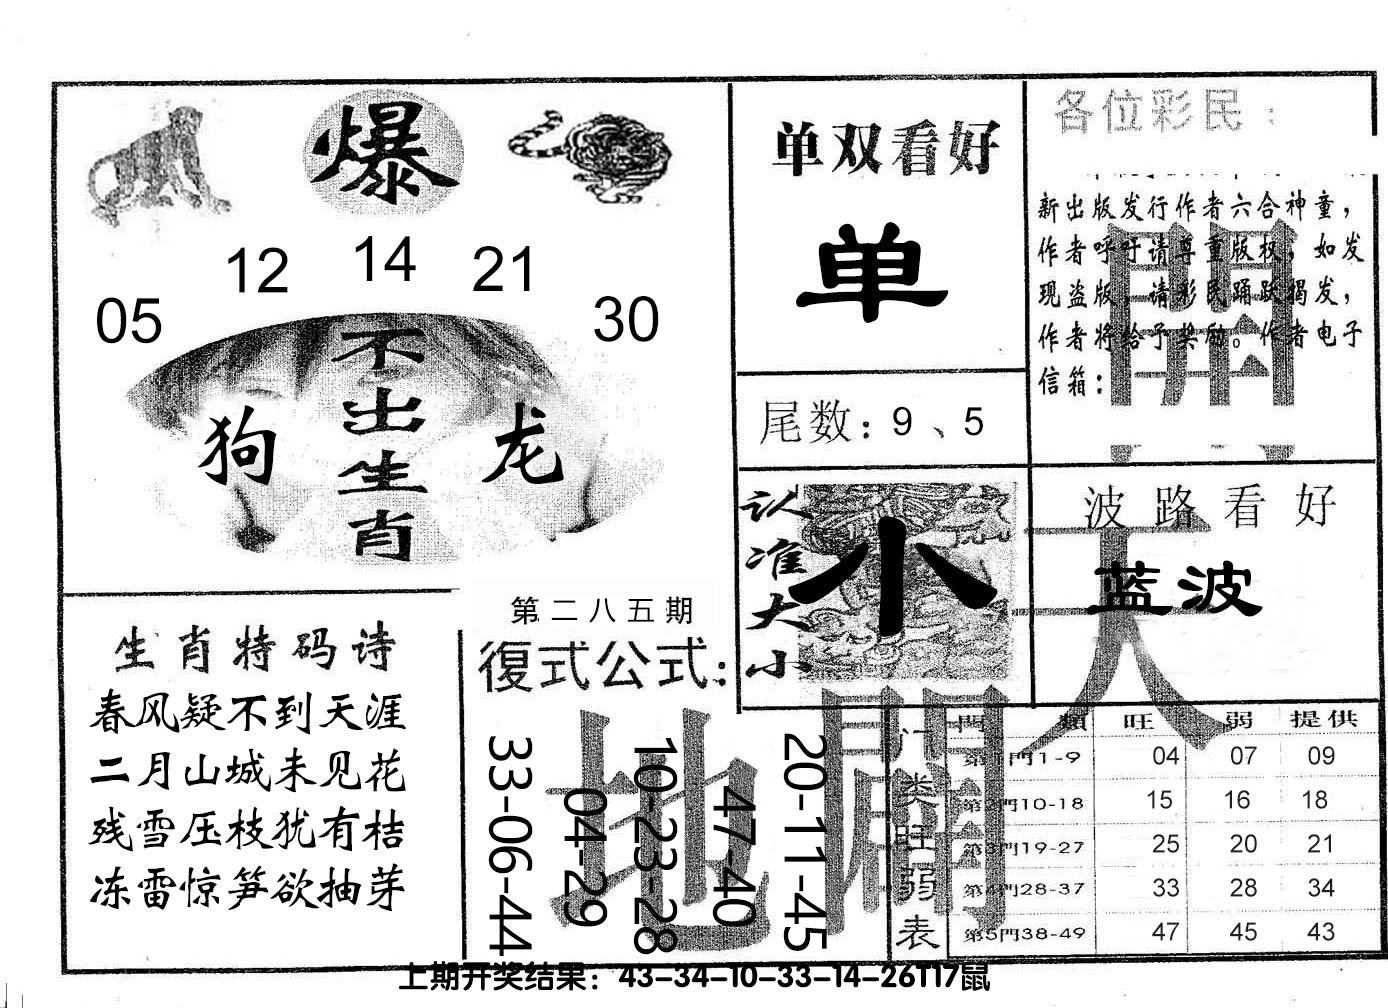 爆
05 12 14 21 30
不出生肖
狗 龙
单双看好
单
尾数：9、5
各位彩民：
新出版发行作者六合神童，
作者呼吁请尊重版权，如发
现盗版，请彩民踊跃揭发，
作者将给予奖励。作者电子
信箱：
認准大小
小
波路看好
蓝波
生肖特码诗
春风疑不到天涯
二月山城未见花
残雪压枝犹有桔
冻雷惊笋欲抽芽
第二八五期
復式公式：
33-06-44
04-29
10-23-28
47-40
20-11-45
天
地
門类旺弱表
門類 旺 弱 提供
第1門1-9 04 07 09
第2門10-18 15 16 18
第3門19-27 25 20 21
第4門28-37 33 28 34
第5門38-49 47 45 43
上期开奖结果：43-34-10-33-14-26T17鼠